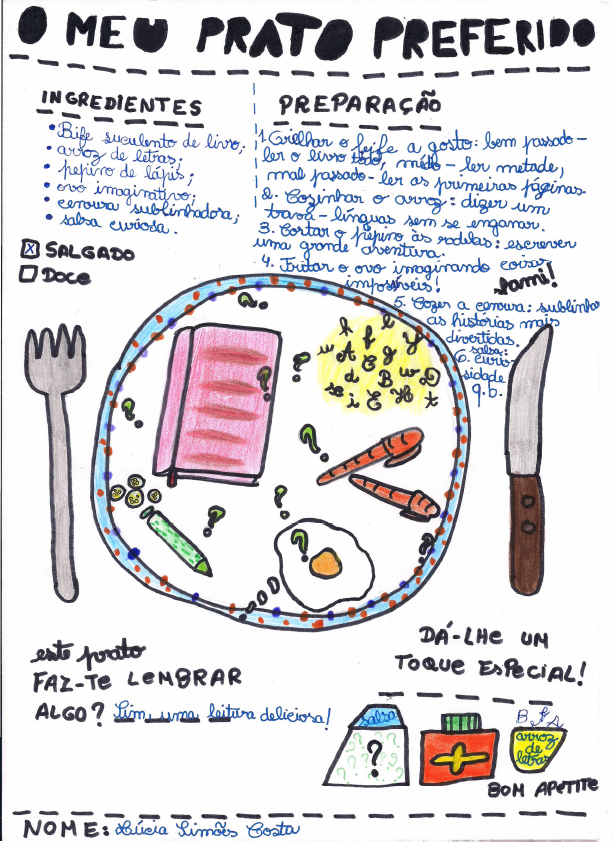 O MEU PRATO PREFERIDO
INGREDIENTES
• Bife suculento de livro;
• arroz de letras;
• pepino de lápis;
• ovo imaginativo;
• cenoura sublinhadora;
• salsa curiosa.
X SALGADO
DOCE
PREPARAÇÃO
1. Grelhar o bife a gosto: bem passado -
ler o livro todo, médio - ler metade,
mal passado - ler as primeiras páginas.
2. Cozinhar o arroz: dizer um
trava-línguas sem se enganar.
3. Cortar o pepino às rodelas: escrever
uma grande aventura.
4. Fritar o ovo imaginando coisas
impossíveis!
5. Cozer a cenoura: sublinhar
as histórias mais
divertidas.
salsa:
6. curio-
sidade
q.b.
nami!
k f l y
w A C g
d B w D
s i E H t
este prato
FAZ-TE LEMBRAR
ALGO? Sim, uma leitura deliciosa!
DÁ-LHE UM
TOQUE ESPECIAL!
salsa
?
arroz
de
letras
BOM APETITE
NOME: Lúcia Simões Costa